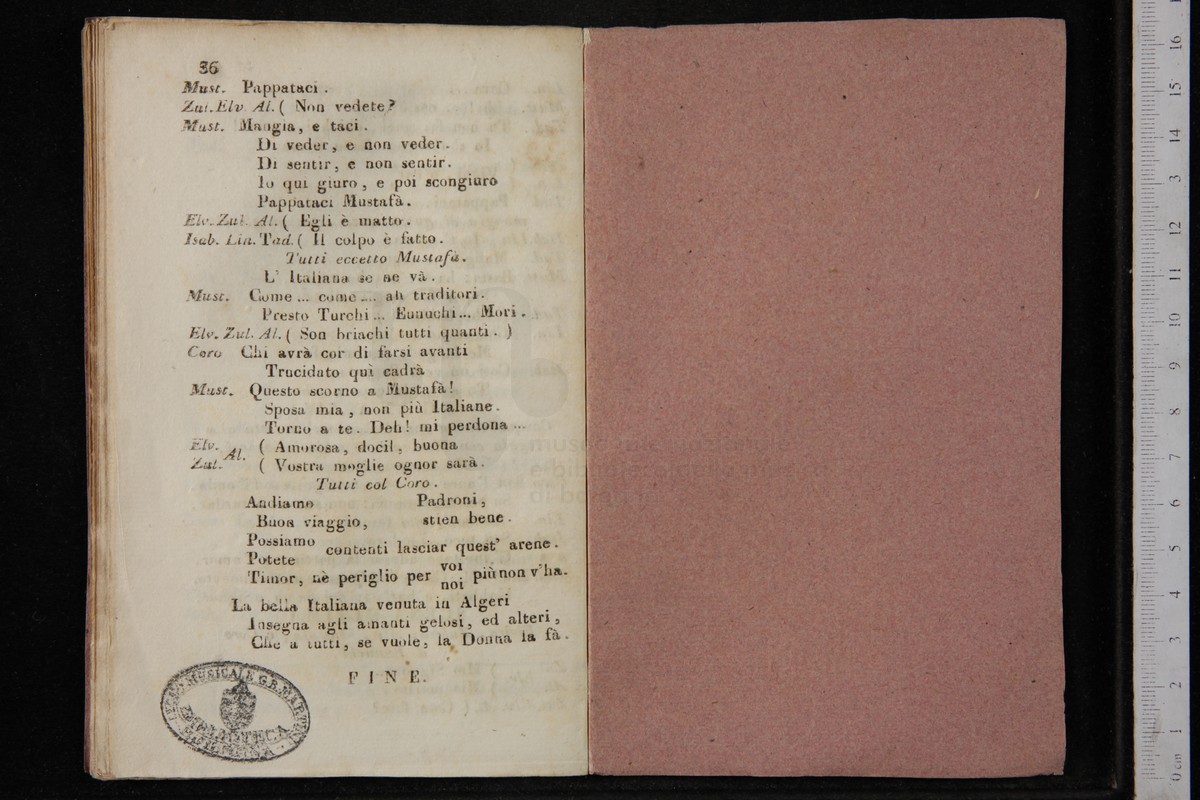 36
Must. Pappataci .
Zul. Elv. Al. ( Non vedete?
Must. Mangia, e taci .
Di veder, e non veder.
Di sentir, e non sentir.
Io qui giuro, e poi scongiuro
Pappataci Mustafà.
Elv. Zul. Al. ( Egli è matto.
Isab. Lin. Tad. ( Il colpo è fatto.
Tutti eccetto Mustafà.
L' Italiana se ne và.
Must. Come ... come .... ah traditori.
Presto Turchi ... Eunuchi ... Mori.
Elv. Zul. Al. ( Son briachi tutti quanti. )
Coro Chi avrà cor di farsi avanti
Trucidato quì cadrà
Must. Questo scorno a Mustafà!
Sposa mia, non più Italiane.
Torno a te. Deh! mi perdona ...
Elv. Al. ( Amorosa, docil, buona
Zul. ( Vostra moglie ognor sarà.
Tutti col Coro.
Andiamo Padroni,
Buon viaggio, stien bene.
Possiamo
Potete contenti lasciar quest' arene.
Timor, nè periglio per voi noi più non v'ha.
La bella Italiana venuta in Algeri
Insegna agli amanti gelosi, ed alteri,
Che a tutti, se vuole, la Donna la fà.
FINE.
LICEO MUSICALE G.B. MARTINI
BIBLIOTECA